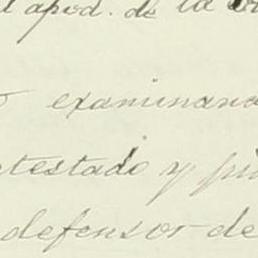 apod. de la
examinana
testado y pi
defensor de